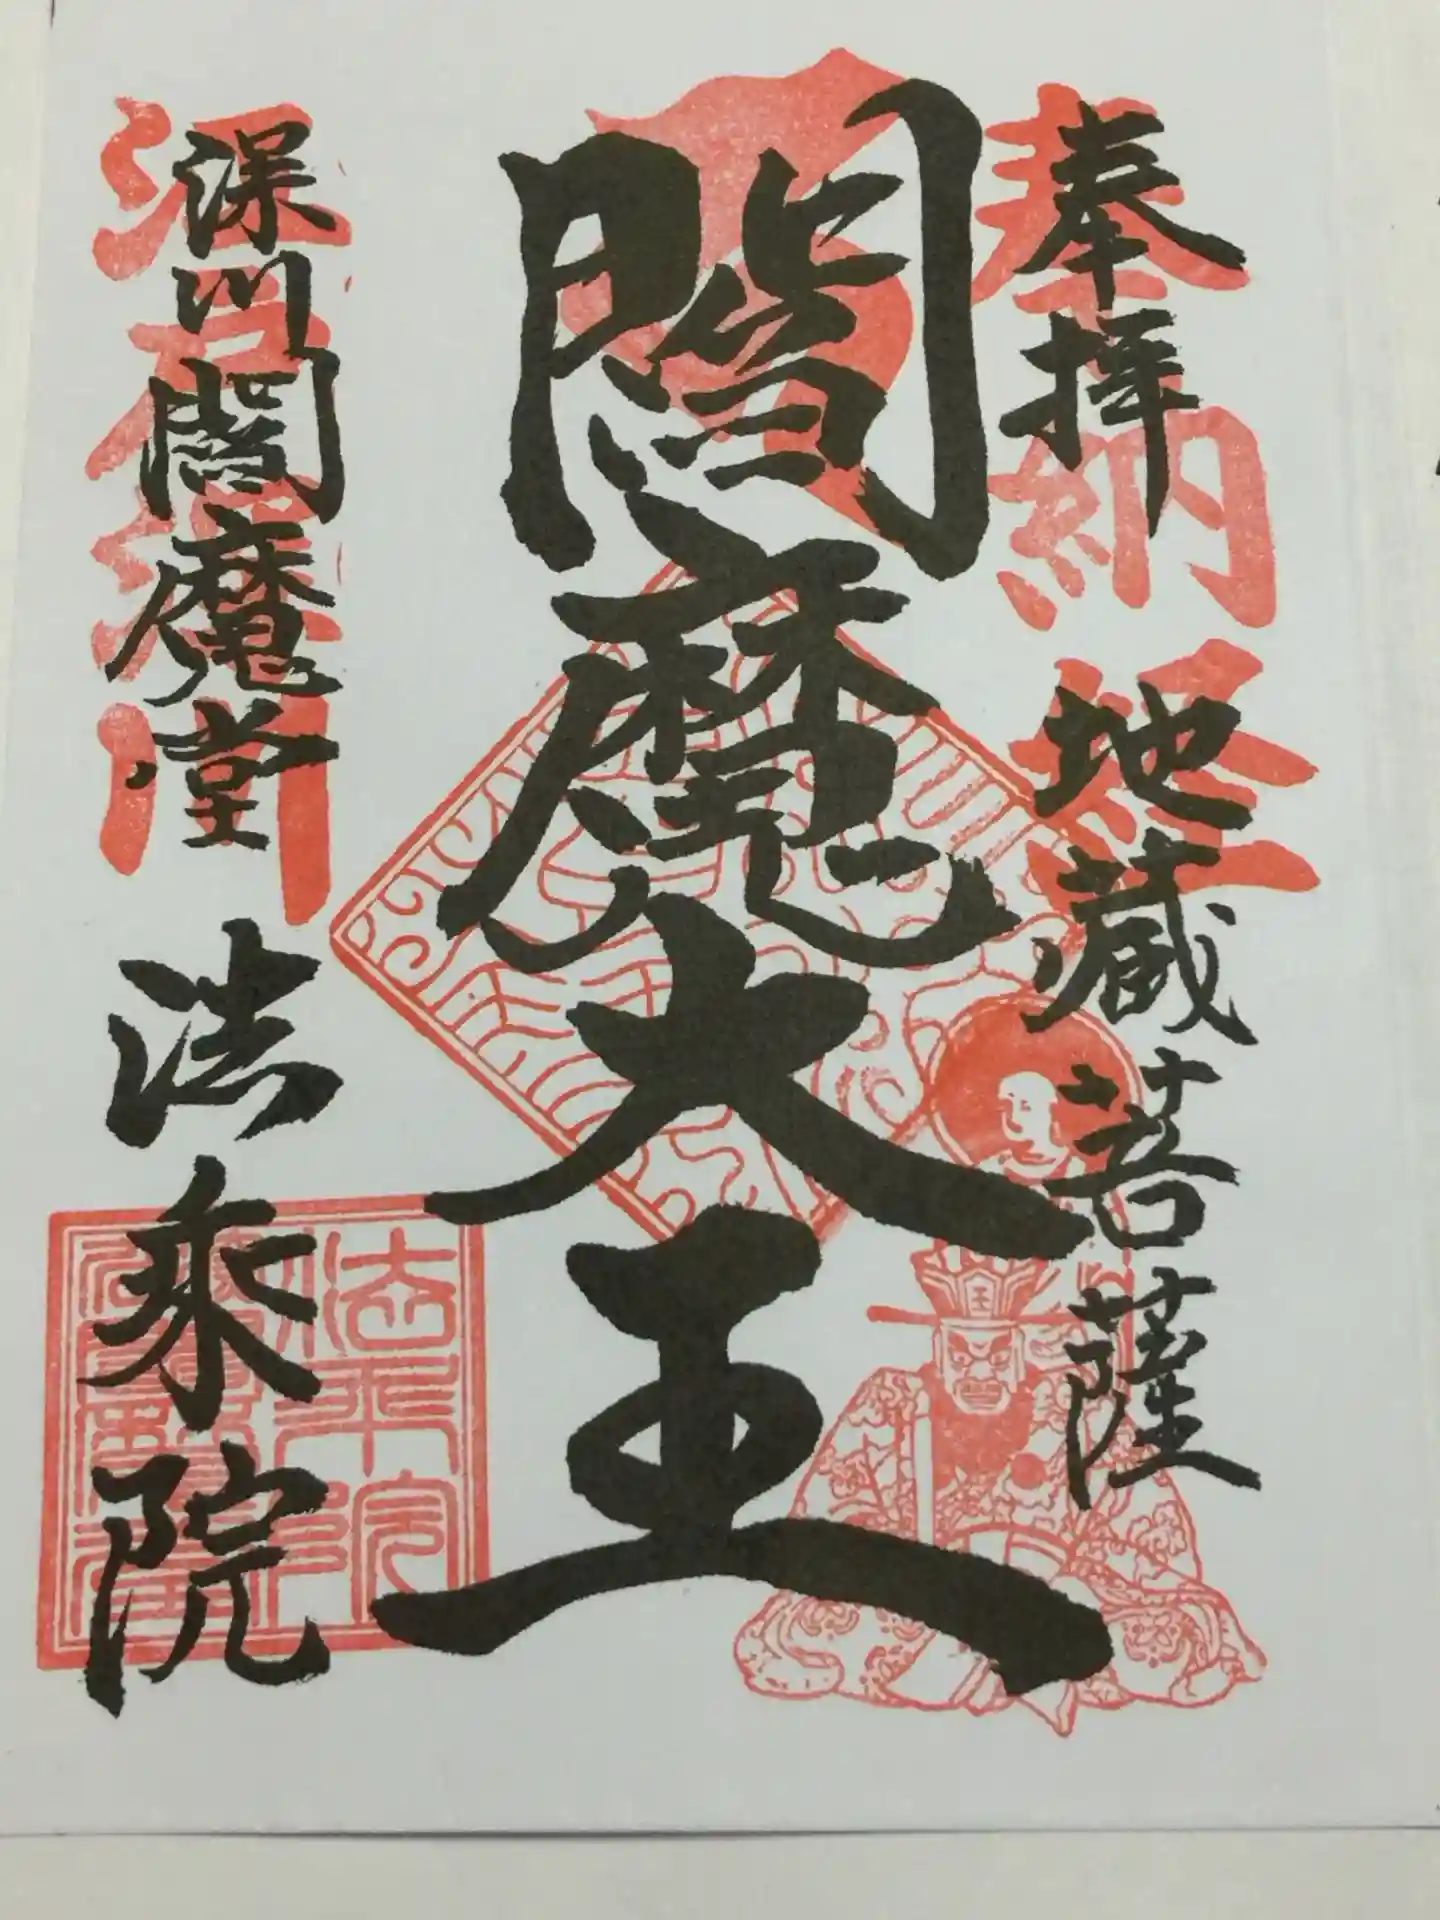 奉拝 地蔵菩薩
奉納経
閻魔大王
王
深川閻魔堂 法乗院
法乗院